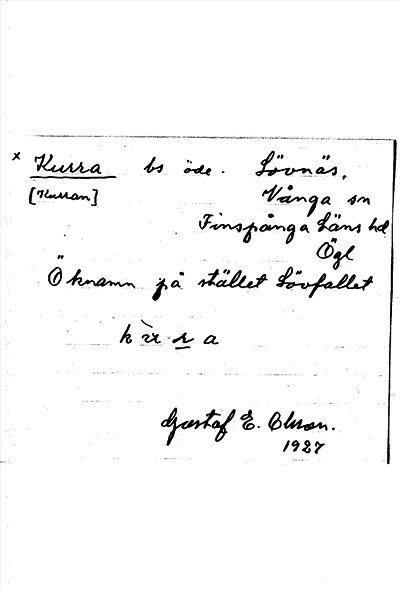 x Kurra bs öde. Lövnäs,
[Kurran] Vånga sn
Finspånga Läns hd
Ögl
Öknamn på stället Lövfallet
Gustaf E. Olsson.
1927